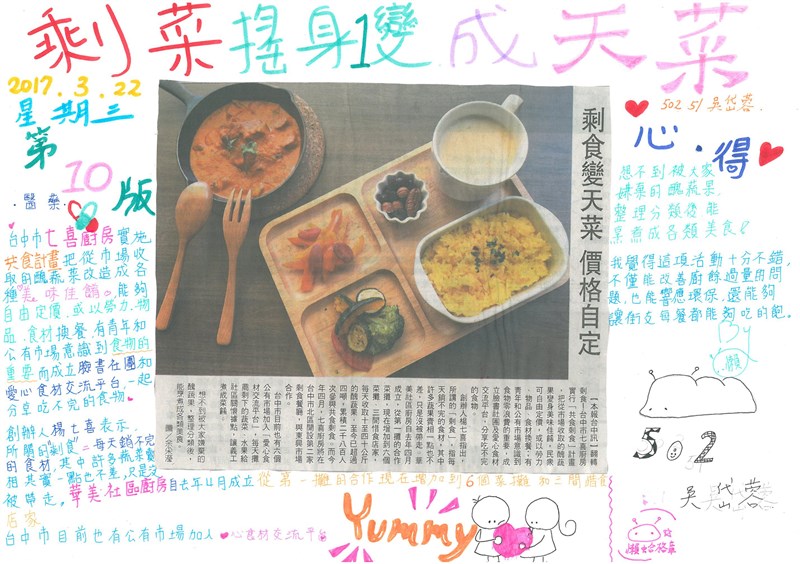 剩菜搖身1變成天菜
2017.3.22
星期三
第
10
版
·醫藥·
502 51 吳岱蓉.
心·得
想不到被大家
嫌棄的醜蔬果.
整理分類後能
烹煮成各類美食!
我覺得這項活動十分不錯,
不僅能改善廚餘過量用問
題,也能響應環保,還能夠
讓街友每餐都能夠吃的飽。
By
懶
台中市七喜廚房實施
共食計畫把從市場收
取的醜蔬菜改造成各
種"美"味佳餚。能夠
自由定價,或以勞力.物
品.食材換餐,有青年和
公有市場意識到食物的
重要而成立臉書社團和
愛心食材交流平台,一起
分享吃不完的食物。
創辦人楊七喜表示,
所謂的"剩食"=每天銷不完
的食材,其中許多蔬菜賣
相其實一點也不差,只是沒
被帶走。華美社區廚房自去年4月成立從第一攤的合作現在增加到6個菜攤和三間餔食
店家
台中市目前也有公有市場加人心食材交流平台
剩食變天菜 價格自定
【本報台中訊】翻轉
剩食!台中市七喜廚房
實行「共食計畫」,
把從市場收取的醜蔬
果變身美味佳餚,民眾
可自由定價,或以勞力
、物品、食材換餐;有
青年和公有市場意識到
食物零浪費的重要,成
立臉書社團及愛心食材
交流平台,分享吃不完
的食物。
創辦人楊七喜指出,
所謂的「剩食」,指每
天銷不完的食材,其中
許多蔬果賣相一點也不
差,只是沒被帶走。華
美社區廚房自去年四月
成立,從第一攤的合作
菜攤,現在增加到六個
菜攤、三間惜食店家,
每天收取三至四十公斤
的醜蔬果,至今已超過
四噸,累積二千八百人
次參與共食剩食。而今
年四月,七喜廚房將在
台中市北區開設第二家
剩食餐廳,與東興市場
合作。
台中市目前也有六個
公有市場加入愛心食
材交流平台,每天攤
廠剩下的蔬果,來給
社區關懷據點,讓義工
煮成菜餚。
想不到被大家嫌棄的
醜蔬果,整理分類後,
能烹煮成各類美食。
Yummy
502
吳岱蓉